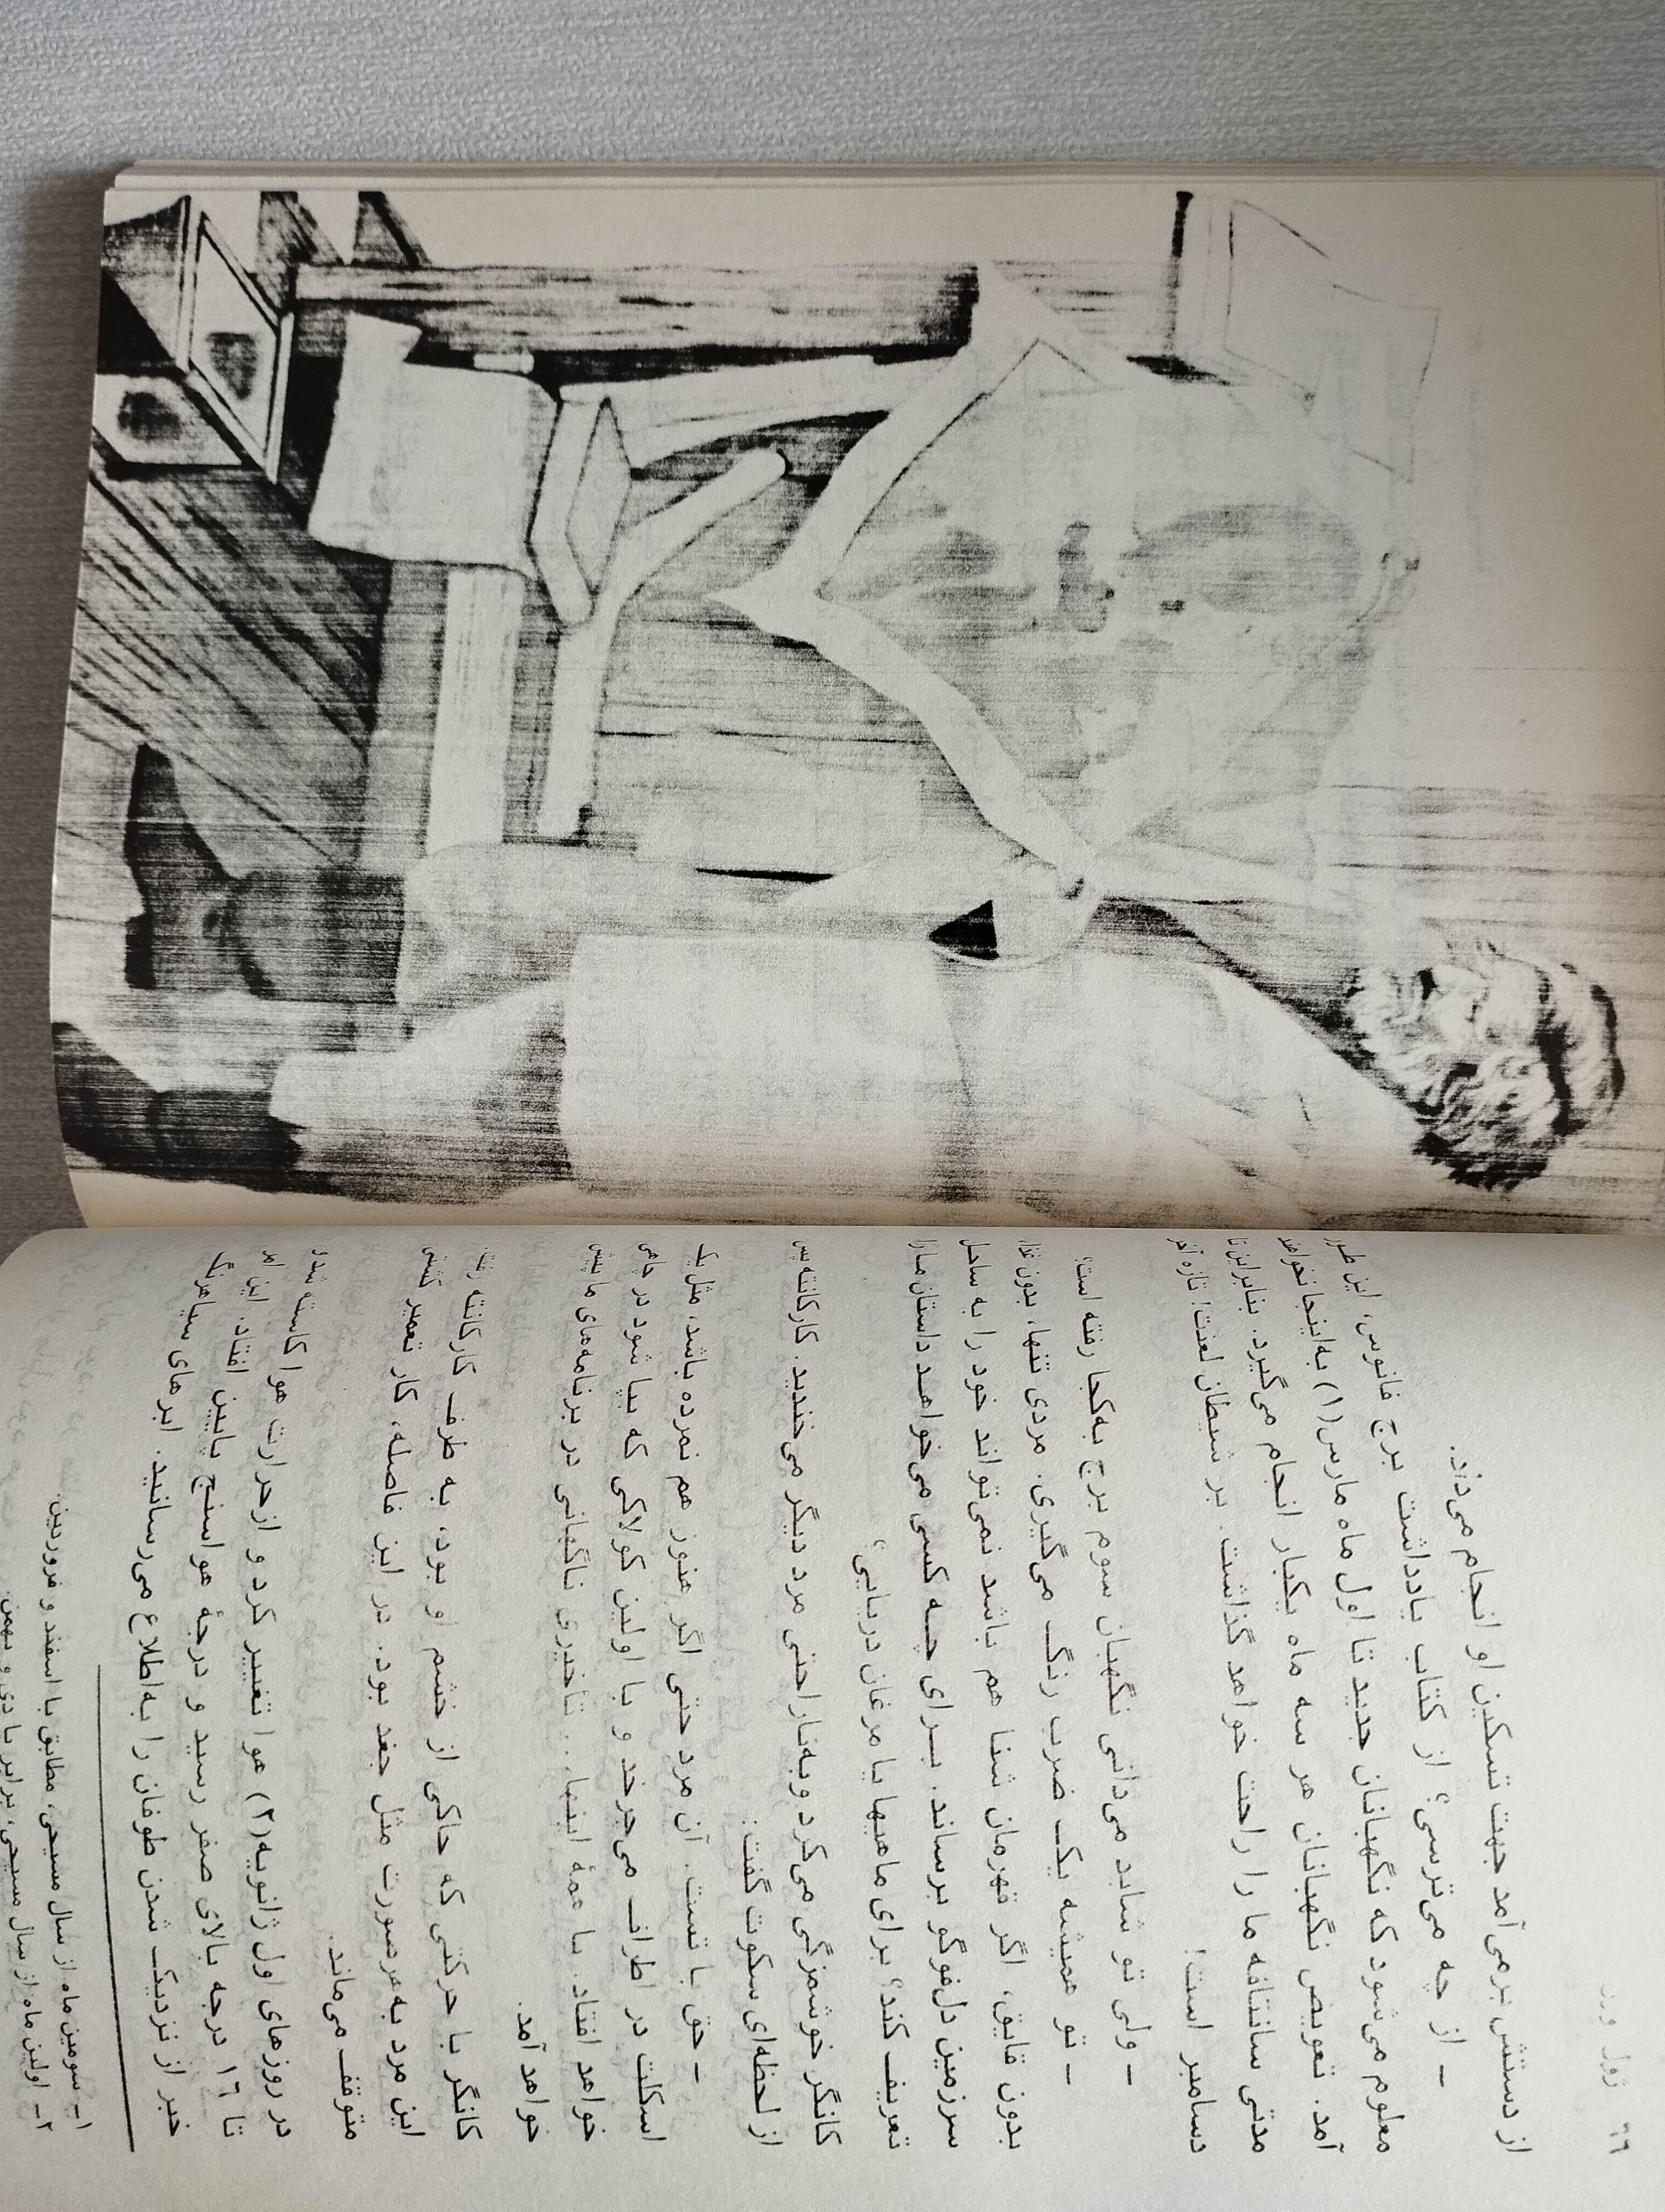 ۶۶ ژول ورن
از دستش برمی‌آمد جهت تسکین او انجام می‌داد.
ـ از چه می‌ترسی؟ از کتاب یادداشت برج فانوس، این طور
معلوم می‌شود که نگهبانان جدید تا اول ماه مارس(۱) به‌اینجا نخواهند
آمد. تعویض نگهبانان هر سه ماه یکبار انجام می‌گیرد. بنابراین تا
مدتی سانتافه ما را راحت خواهد گذاشت. بر شیطان لعنت! تازه آخر
دسامبر است!
ـ ولی تو شاید می‌دانی نگهبان سوم برج به‌کجا رفته است؛
ـ تو همیشه یک ضرب رنگ می‌گیری. مردی تنها، بدون غذا
بدون قایق، اگر قهرمان شنا هم باشد نمی‌تواند خود را به ساحل
سرزمین دل‌فوگو برساند. برای چه کسی می‌خواهد داستان ما را
تعریف کند؟ برای ماهیها یا مرغان دریایی؟
کانگر خوشمزگی می‌کرد و به‌ناراحتی مرد دیگر می‌خندید. کارکانته پس
از لحظه‌ای سکوت گفت:
ـ حق با تست. آن مرد حتی اگر هنوز هم نمرده باشد، مثل یک
اسکلت در اطراف می‌چرخد و با اولین کولاکی که بپا شود در چاهی
خواهد افتاد. با همهٔ اینها... تاخیری ناگهانی در برنامه‌های ما پیش
خواهد آمد.
کانگر با حرکتی که حاکی از خشم او بود، به طرف کارکانته رفت.
این مرد به‌هرصورت مثل جغد بود. در این فاصله، کار تعمیر کشتی
متوقف می‌ماند.
در روزهای اول ژانویه(۲) هوا تغییر کرد و از حرارت هوا کاسته شد و
تا ۱۶ درجه بالای صفر رسید و درجهٔ هواسنج پایین افتاد. این امر
خبر از نزدیک شدن طوفان را به‌اطلاع می‌رسانید. ابرهای سیاهرنگ
۱ـ سومین ماه از سال مسیحی، مطابق با اسفند و فروردین.
۲ـ اولین ماه از سال مسیحی، برابر با دی و بهمن.